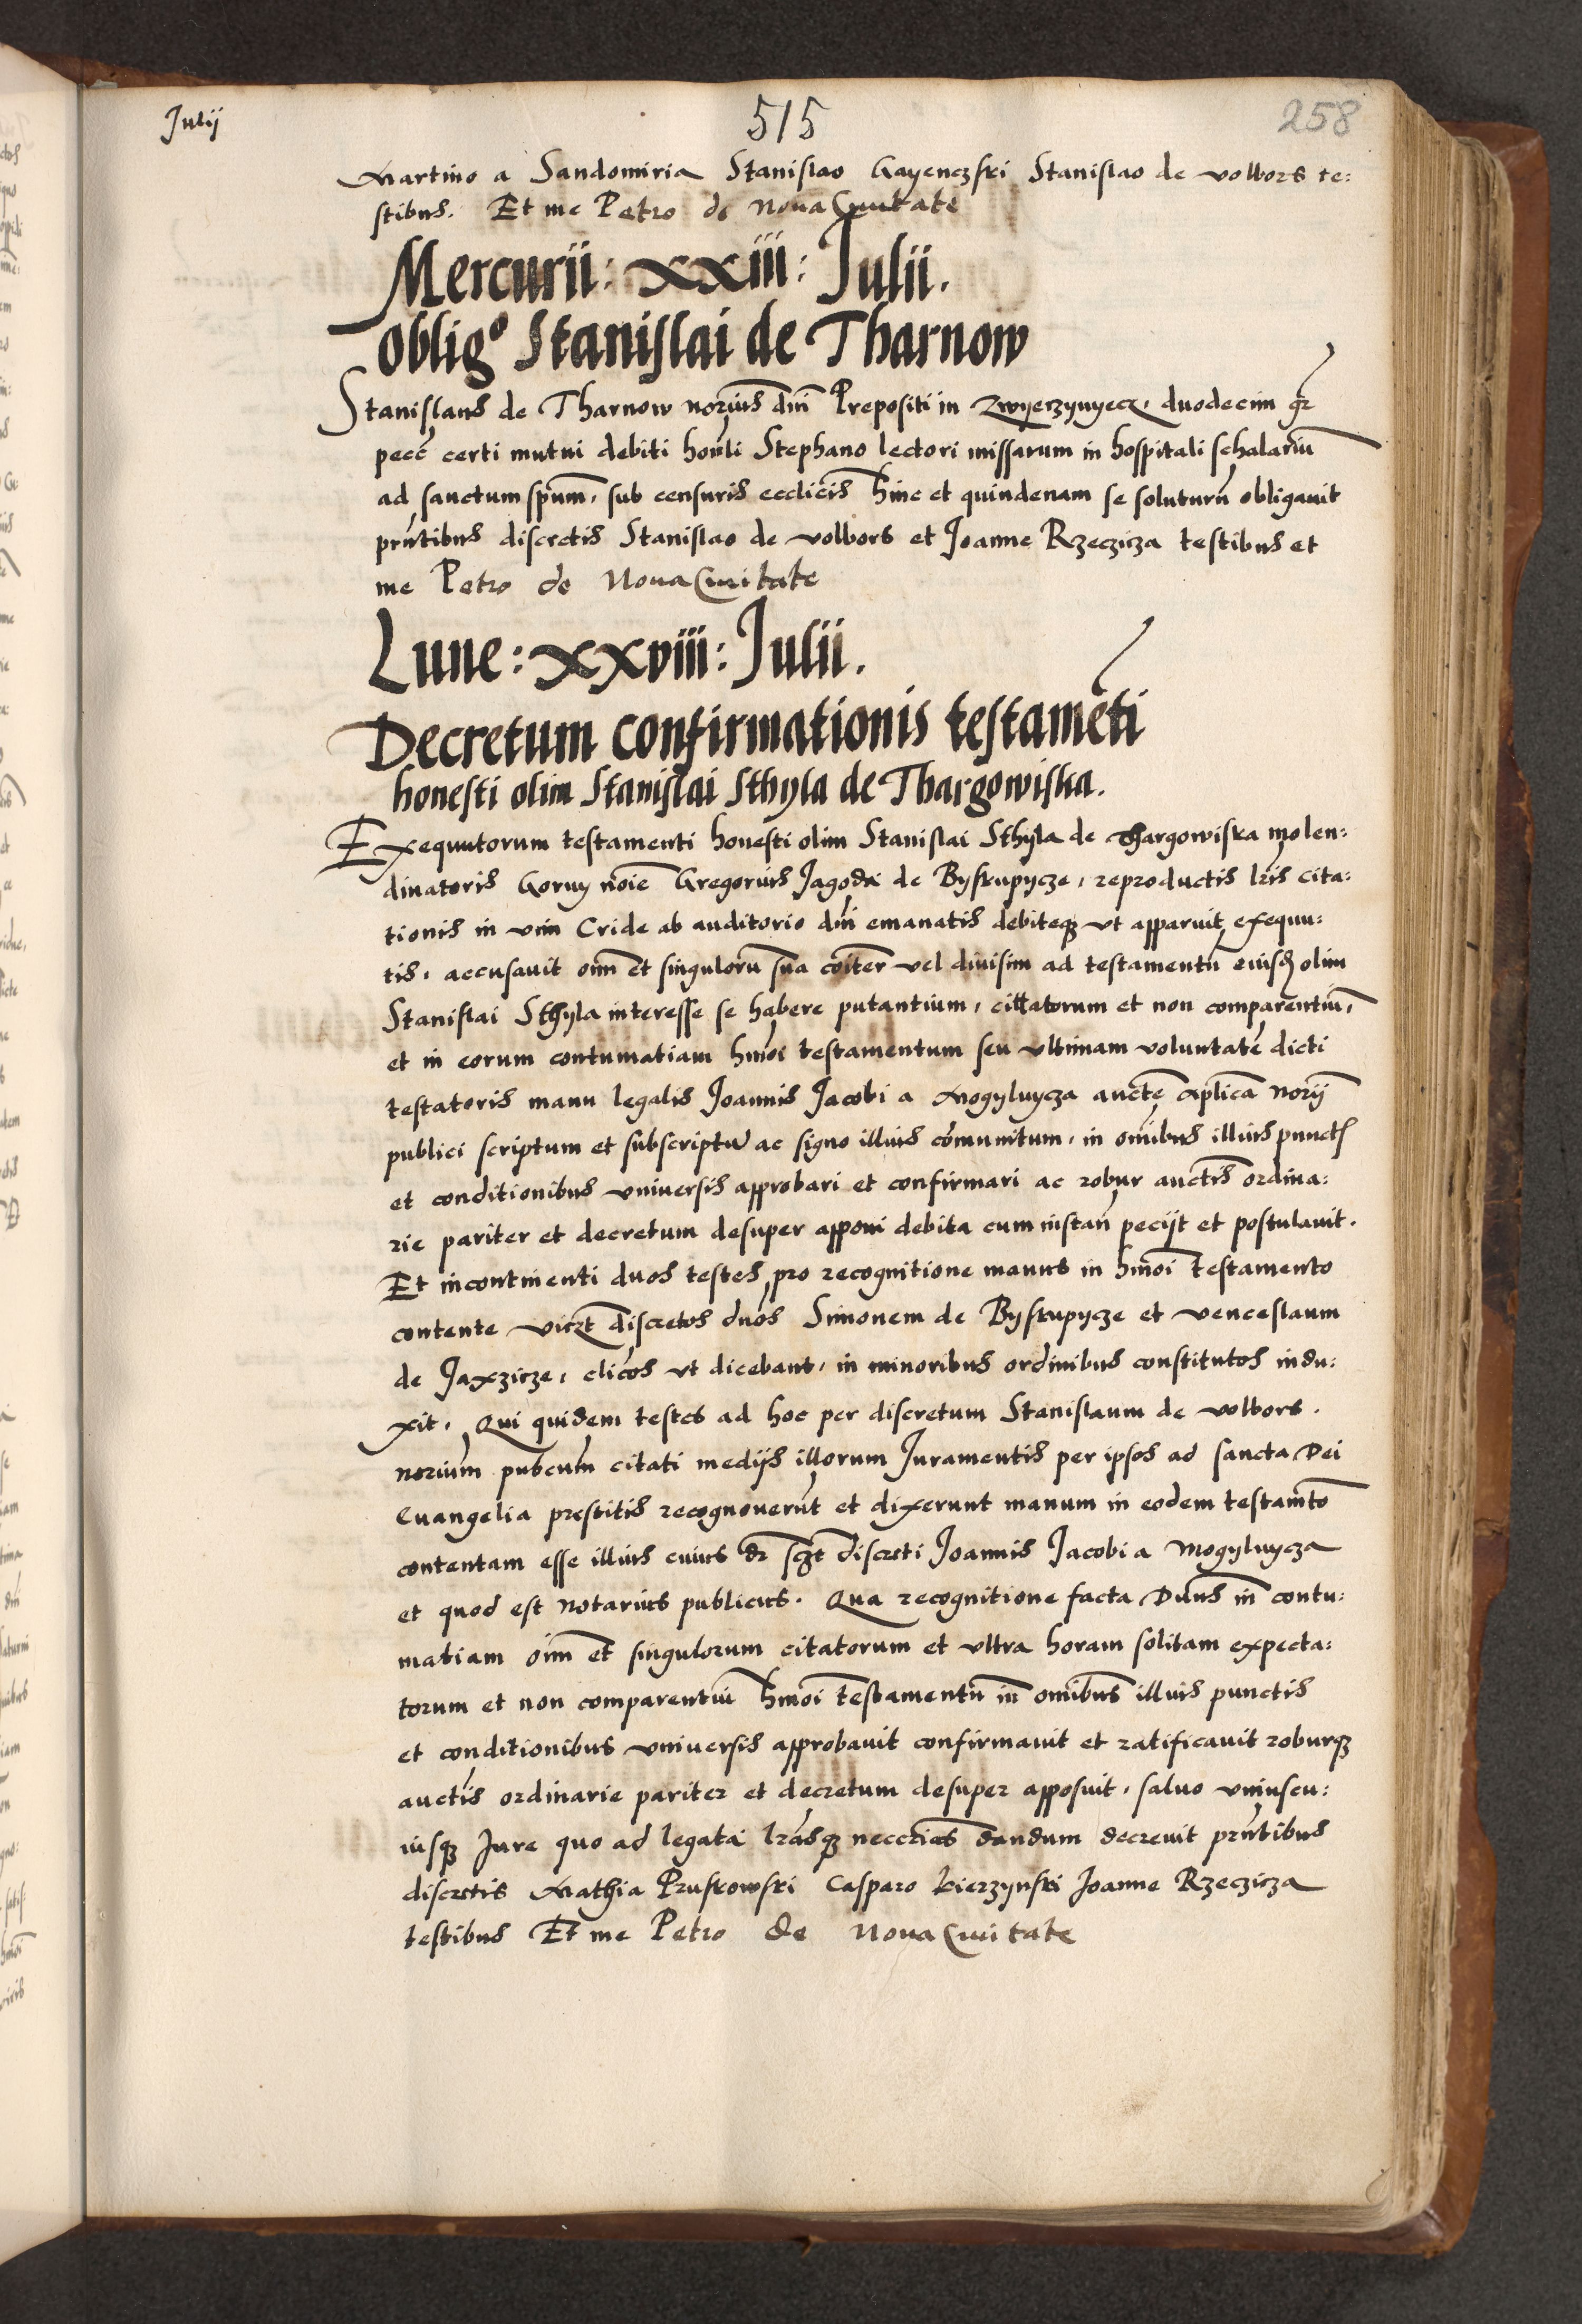 Julij
515
258
Martino a Sandomiria Stanislao Gayenczski Stanislao de volbors te:
stibus. Et me Petro de Noua Ciuitate
Mercurii: xxiii: Julii.
obligº Stanislai de Tharnow
Stanislaus de Tharnow norius dni Prepositi in Zwyerzynyecz, duodecim gr
pecc certi mutui debiti honli Stephano lectori missarum in hospitali scholariu
ad sanctum spum, sub censuris ecclicis hinc et quindenam se soluturu obligauit
prntibus discretis Stanislao de volbors et Joanne Rzeczicza testibus et
me Petro de Noua Ciuitate
Lune: xxviii: Julii.
Decretum confirmationis testamēti
honesti olim Stanislai Sthyla de Thargowiska.
Exequutorum testamenti honesti olim Stanislai Sthyla de Thargowiska molen:
dinatoris Gorny noie Gregorius Jagoda de Byskupycze, reproductis lris cita:
tionis in vim Cride ab auditorio dni emanatis debiteq ut apparuit exequu:
tis, accusauit oim et singuloru sua coiter vel diuisim ad testamentu eiusd olim
Stanislai Sthyla interesse se habere putantium, cittatorum et non comparentiu,
et in eorum contumatiam hmoi testamentum seu vltimam voluntate dicti
testatoris manu legalis Joannis Jacobi a Mogylnycza aucte aplica norij
publici scriptum et subscriptu ac signo illius comunitum, in omibus illius punctis
et conditionibus vniuersis approbari et confirmari ac robur auctis ordina:
rie pariter et decretum desuper apponi debita cum instan pecijt et postulauit.
Et incontinenti duos testes pro recognitione manus in hmoi testamento
contente vicz discretos duos Simonem de Byskupycze et venceslaum
de Jaxzicze, clicos vt dicebant, in minoribus ordinibus constitutos indu:
xit. Qui quidem testes ad hoc per discretum Stanislaum de volbors.
norium pubcum citati medijs illorum Juramentis per ipsos ad sancta Dei
Euangelia prestitis recognouerut et dixerunt manum in eodem testamto
contentam esse illius cuius dr sczt discreti Joannis Jacobi a Mogylnycza
et quod est Notarius publicus. Qua recognitione facta Duns in contu:
matiam oim et singulorum citatorum et vltra horam solitam expecta:
torum et non comparentiu hmoi testamentu in omibus illius punctis
et conditionibus vniuersis approbauit confirmauit et ratificauit roburq
auctis ordinarie pariter et decretum desuper apposuit, saluo vniuscu:
iusq Jure quo ad legata lrasq neccrias dandum decreuit prntibus
discretis Mathia Pruskowski Casparo Kierzynski Joanne Rzeczicza
testibus Et me Petro de Noua Ciuitate